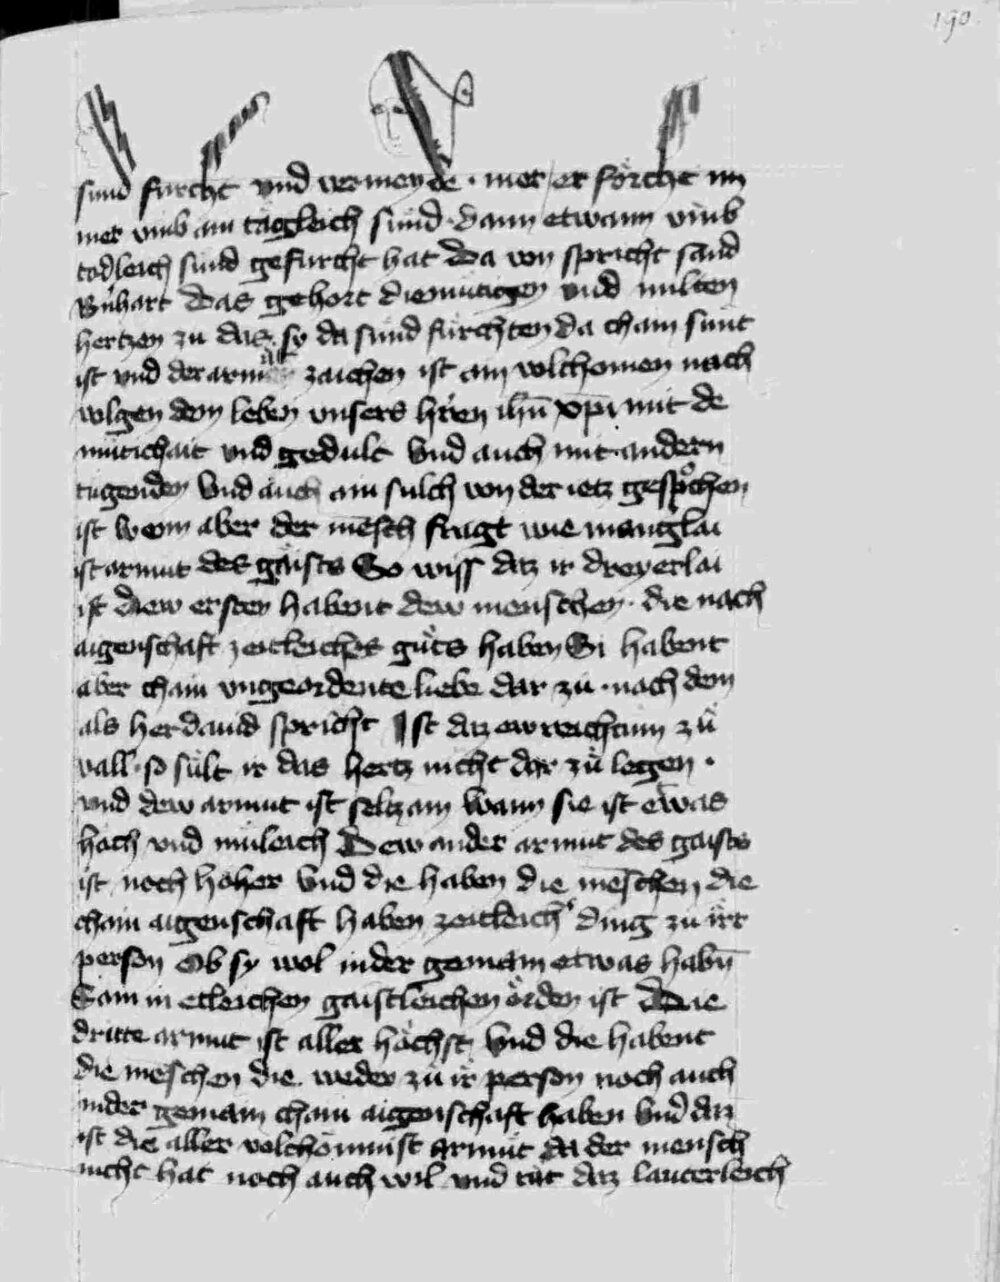 190
sünd fürcht vnd vermeyde · mer er förcht im
mer vmb ain tägleich sünd · dann etwann vmb
todleich sünd gefürcht hat Da von spricht sand
Bnhart Das gehort diemütigen vnd milten
hertzen zu das sy da sünd fürchten da chain sünt
ist vnd der armüt zaichen ist ain volchomen nach
volgen dem leben vnsers hren ihu xpi mit de
mütichait vnd gedult Vnd auch mit andern
tugenden Vnd auch ain sulch von der ietz gesprochen
ist Wenn aber der mesch fragt wie manglai
ist armut des gaists So wiss daz ir dreyerlai
ist Diew ersten habent dew menschen · die nach
aigenschaft zeitleiches güts haben Si habent
aber chain vngeordente liebe dar zu · nach dem
als her dauid spricht Ist daz ew reichtum zü
vall · so sült ir das hertz nicht dar zü legen ·
vnd dew armut ist seltzam Wann sie ist etwas
hach vnd müleich Dew ander armut des gaists
ist noch hoher Vnd die haben die meschen die
chain aigenschaft haben zeitleich ding zu irr
person Ob sy wol in der gemain etwas habn
Sam in etleichen gaistleichen örden ist Die
dritte armut ist aller höchst Vnd die habent
die meschen die weder zü ir person noch auch
in der gemain chain aigenschaft haben Vnd daz
ist die aller volchömnist armüt da der mensch
nicht hat noch auch wil vnd tüt daz lauterleich